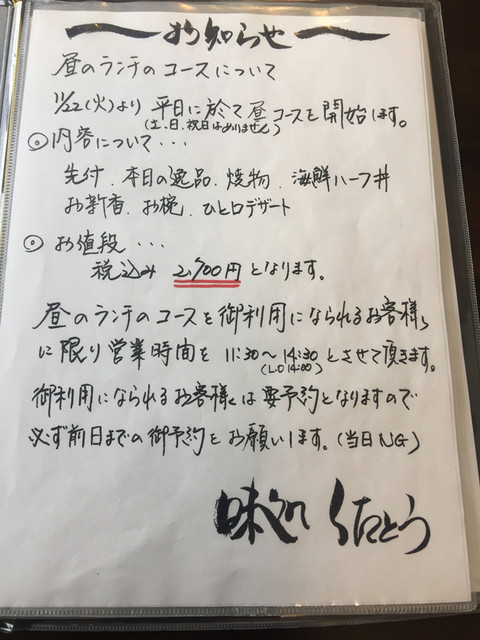 お知らせ
昼のランチのコースについて
11/22(火)より 平日に於て昼コースを開始します。
(土、日、祝日はありません)
◎内容について・・・
先付、本日の逸品、焼物、海鮮ハーフ丼
お新香、お椀、ひと口デザート
◎お値段・・・
税込み 2,700円となります。
昼のランチのコースを御利用になられるお客様
に限り営業時間を 11:30〜14:30とさせて頂きます。
(L.O 14:00)
御利用になられるお客様は要予約となりますので
必ず前日までの御予約をお願いします。(当日NG)
味処